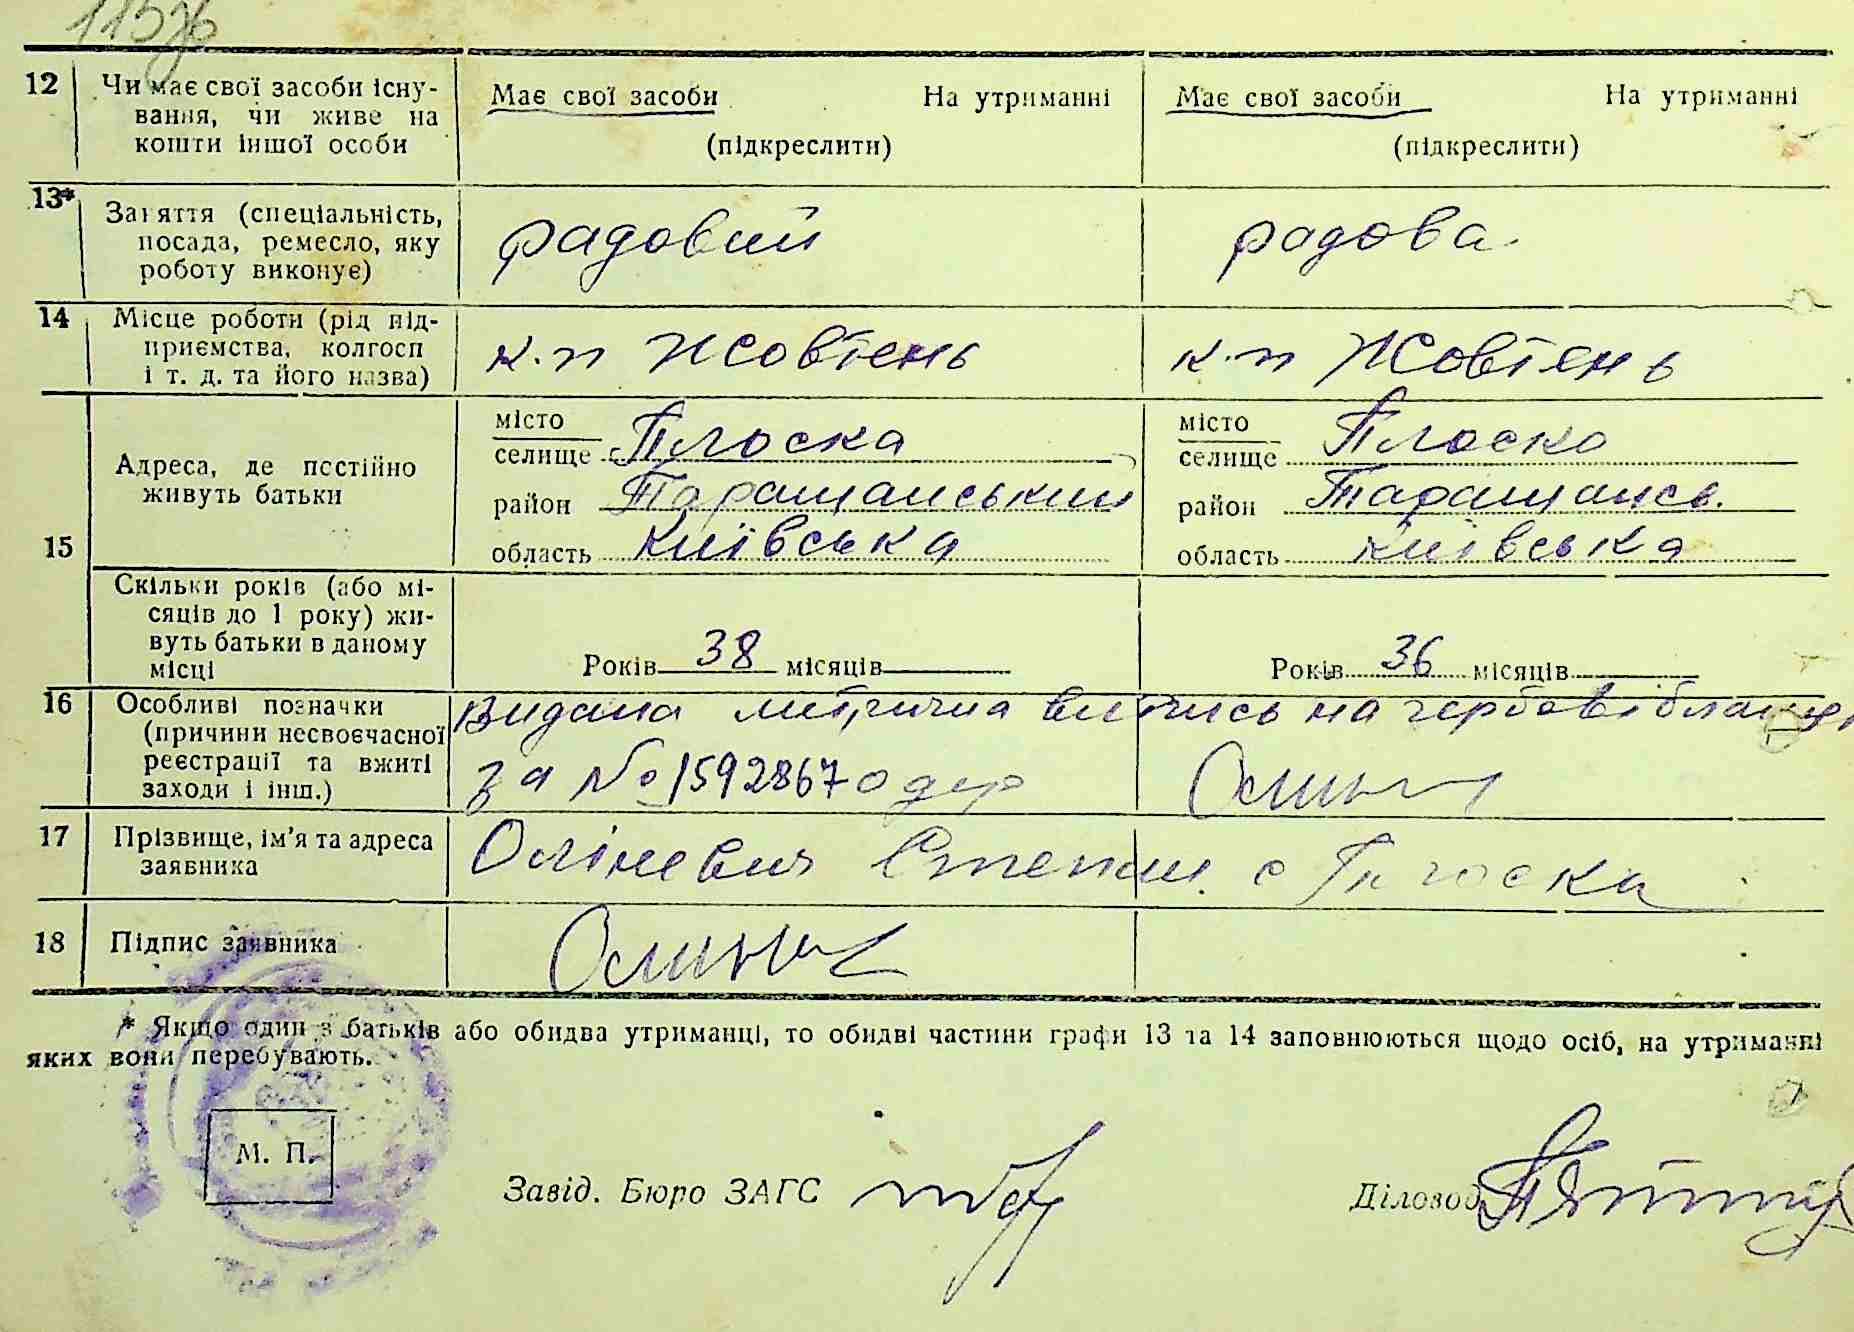 115
12 Чи має свої засоби існу-
вання, чи живе на
кошти іншої особи
Має свої засоби На утриманні
(підкреслити)
Має свої засоби На утриманні
(підкреслити)
13* Заняття (спеціальність,
посада, ремесло, яку
роботу виконує)
радовий
радова
14 Місце роботи (рід під-
приємства, колгосп
і т. д. та його назва)
к.п Жовтень
к.п Жовтень
15
Адреса, де постійно
живуть батьки
місто
селище Плоска
район Таращанський
область Київська
місто
селище Плоска
район Таращансь.
область Київська
Скільки років (або мі-
сяців до 1 року) жи-
вуть батьки в даному
місці
Років 38 місяців
Років 36 місяців
16 Особливі позначки
(причини несвоєчасної
реєстрації та вжиті
заходи і інш.)
Видана метрична випись на гербові бланци
за № 1592867 одер
17 Прізвище, ім'я та адреса
заявника
Оліневич Степан. с Плоска
18 Підпис заявника
* Якщо один з батьків або обидва утриманці, то обидві частини графи 13 та 14 заповнюються щодо осіб, на утриманні
яких вони перебувають.
М. П.
Завід. Бюро ЗАГС
Діловод